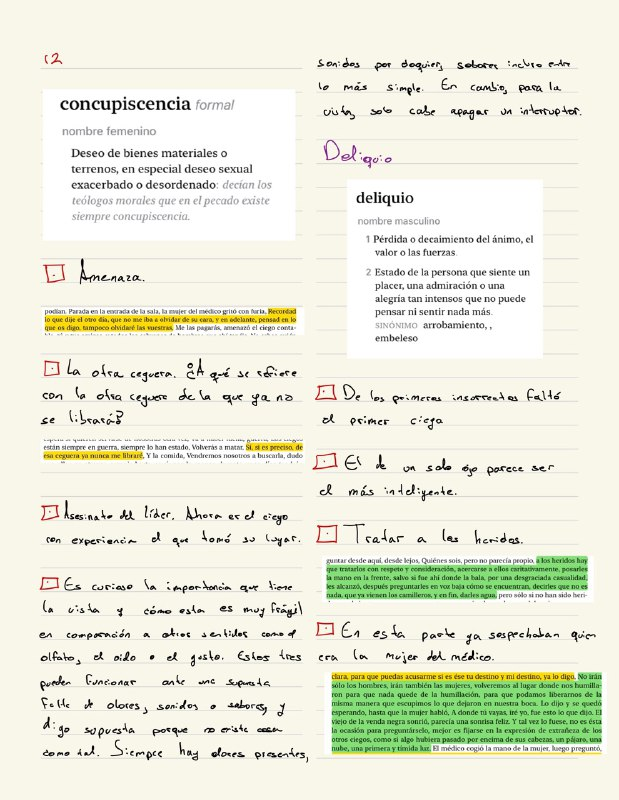 12
concupiscencia formal
nombre femenino
Deseo de bienes materiales o
terrenos, en especial deseo sexual
exacerbado o desordenado: decían los
teólogos morales que en el pecado existe
siempre concupiscencia.
Amenaza.
podían. Parada en la entrada de la sala, la mujer del médico gritó con furia, Recordad
lo que dije el otro día, que no me iba a olvidar de su cara, y en adelante, pensad en lo
que os digo, tampoco olvidaré las vuestras, Me las pagarás, amenazó el ciego conta-
La otra ceguera. ¿A qué se refiere
con la otra ceguera de la que ya no
se librará?
están siempre en guerra, siempre lo han estado. Volverás a matar. Sí, si es preciso, de
esa ceguera ya nunca me libraré, Y la comida, Vendremos nosotros a buscarla, dudo
Asesinato del líder. Ahora es el ciego
con experiencia el que tomó su lugar.
Es curioso la importancia que tiene
la vista y cómo esta es muy frágil
en comparación a otros sentidos como el
olfato, el oído o el gusto. Estos tres
pueden funcionar ante una supuesta
falta de olores, sonidos o sabores, y
digo supuesta porque no existe
como tal. Siempre hay olores presentes,
sonidos por doquier, sabores incluso entre
lo más simple. En cambio, para la
vista, solo cabe apagar un interruptor.
Deliquio
deliquio
nombre masculino
1 Pérdida o decaimiento del ánimo, el
valor o las fuerzas.
2 Estado de la persona que siente un
placer, una admiración o una
alegría tan intensos que no puede
pensar ni sentir nada más.
SINÓNIMO arrobamiento, ,
embeleso
De los primeros insurrectos faltó
el primer ciego
El de un solo ojo parece ser
el más inteligente.
Tratar a los heridos.
guntar desde aquí, desde lejos, Quiénes sois, pero no parecía propio, a los heridos hay
que tratarlos con respeto y consideración, acercarse a ellos caritativamente, posarles
la mano en la frente, salvo si fue ahí donde la bala, por una desgraciada casualidad,
les alcanzó, después preguntarles en voz baja cómo se encuentran, decirles que no es
nada, que ya vienen los camilleros, y en fin, darles agua, pero sólo si no han sido heri-
En esta parte ya sospechaban quien
era la mujer del médico.
clara, para que puedas acusarme si es ése tu destino y mi destino, ya lo digo. No irán
sólo los hombres, irán también las mujeres, volveremos al lugar donde nos humilla-
ron para que nada quede de la humillación, para que podamos liberarnos de la
misma manera que escupimos lo que dejaron en nuestra boca. Lo dijo y se quedó
esperando, hasta que la mujer habló, A donde tú vayas, iré yo, fue esto lo que dijo. El
viejo de la venda negra sonrió, parecía una sonrisa feliz. Y tal vez lo fuese, no es ésta
la ocasión para preguntárselo, mejor es fijarse en la expresión de extrañeza de los
otros ciegos, como si algo hubiera pasado por encima de sus cabezas, un pájaro, una
nube, una primera y tímida luz. El médico cogió la mano de la mujer, luego preguntó,